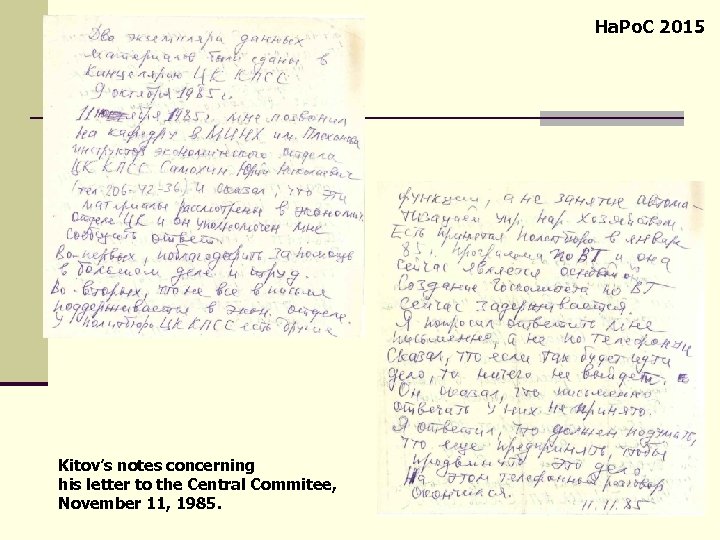 HaPoC 2015
Два экземпляра данных
материалов были сданы в
Канцелярию ЦК КПСС
9 октября 1985 г.
11 ноября 1985 г. мне позвонил
на кафедру в МИНХ им. Плеханова
инструктор экономического отдела
ЦК КПСС Самохин Юрий Николаевич
(тел 206-42-36) и сказал, что эти
материалы рассмотрены в эконом.
отделе ЦК и он уполномочен мне
сообщить ответ.
Во-первых, поблагодарить за помощь
в большом деле и труд.
Во-вторых, что не все в письме
поддерживается в экон. отделе.
У Политбюро ЦК КПСС есть другие
функции, а не занятие автома-
тизацией упр. нар. хозяйством.
Есть принятая Политбюро в январе
85 г. программа по ВТ и она
сейчас является основной
Создание Госкомитета по ВТ
сейчас задерживается.
Я попросил ответить мне
письменно, а не по телефону и
сказал, что если так будет идти
дело, то ничего не выйдет.
Он сказал, что письменно
отвечать у них не принято.
Я ответил, что должен подумать,
что еще предпринять, чтобы
продвинуть это дело.
На этом телефонный разговор
окончился.
11.11.85
Kitov's notes concerning
his letter to the Central Commitee,
November 11, 1985.